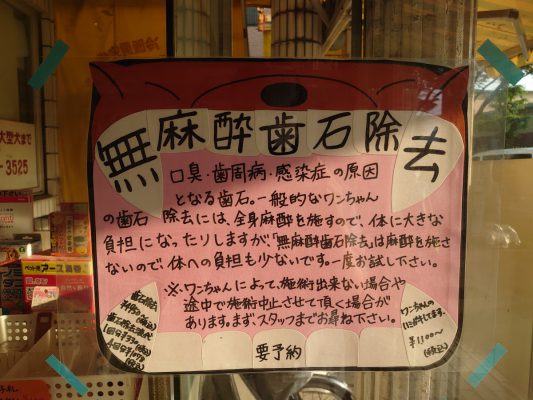 無麻酔歯石除去
口臭・歯周病・感染症の原因
となる歯石。一般的なワンちゃん
の歯石除去には、全身麻酔を施すので、体に大きな
負担になったりしますが「無麻酔歯石除去」は麻酔を施さ
ないので、体への負担も少ないです。一度お試し下さい。
※・ワンちゃんによって、施術出来ない場合や
途中で施術中止させて頂く場合が
あります。まず、スタッフまでお尋ね下さい。
要予約
ワンちゃんの
¥1100〜
(税込)
大型犬まで
-3525